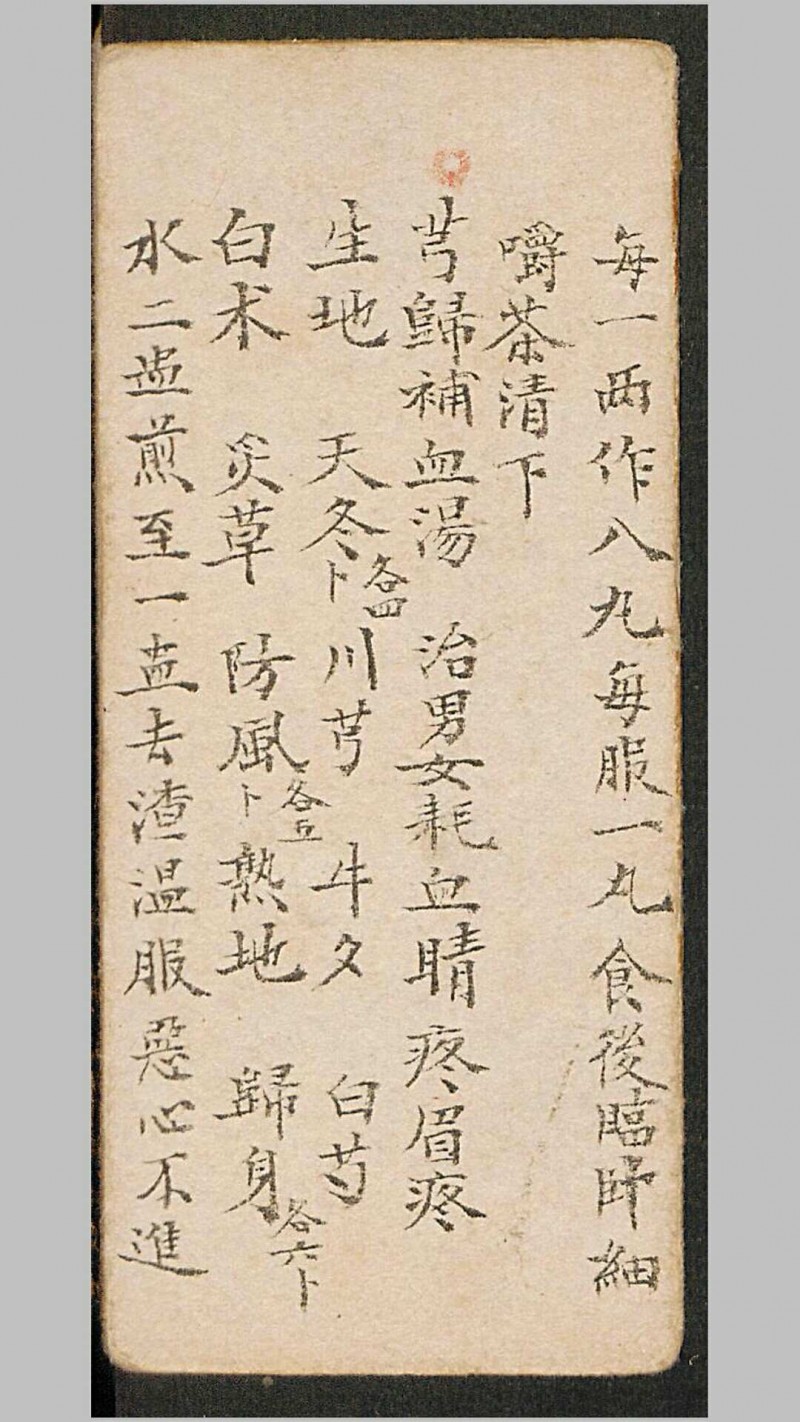 每一两作八丸每服一丸食後臨卧細
嚼茶清下
芎歸補血湯 治男女耗血睛疼眉疼
生地 天冬各四卜川芎 牛夕 白芍
白术 炙草 防風各五卜熟地 歸身各六卜
水二盅煎至一盅去渣温服惡心不進